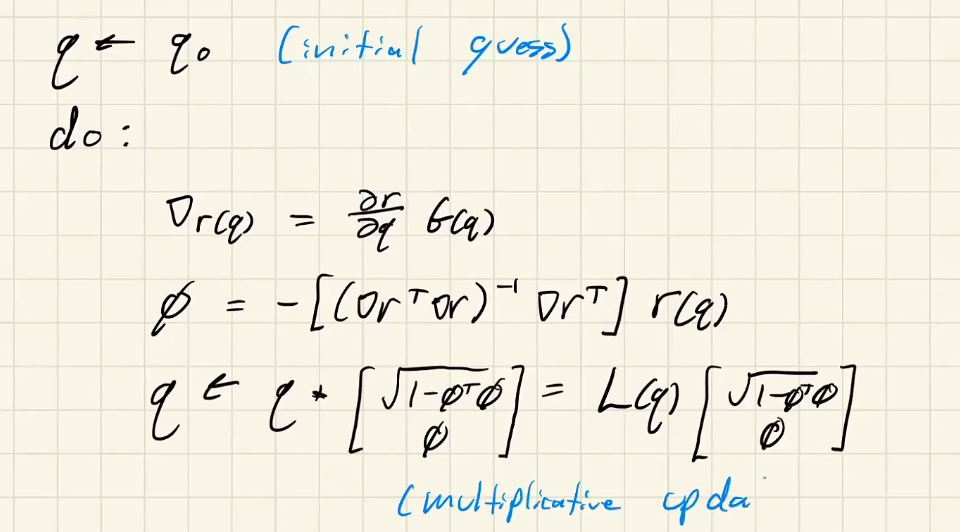 q ← q₀ (initial guess)
do:
∇r(q) = ∂r/∂q G(q)
ϕ = -[(∇rᵀ∇r)⁻¹ ∇rᵀ] r(q)
q ← q * [√(1-ϕᵀϕ) ; ϕ] = L(q) [√(1-ϕᵀϕ) ; ϕ]
(multiplicative upda